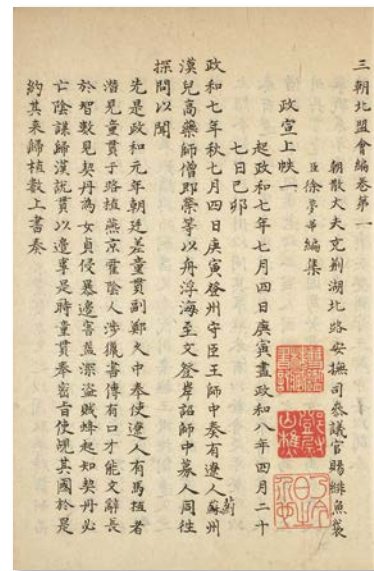 三朝北盟會編卷第一
朝散大夫充荆湖北路安撫司參議官賜緋魚袋
臣徐夢莘編集
政宣上帙一
起政和七年七月四日庚寅盡政和八年四月二十
七日己卯
政和七年秋七月四日庚寅登州守臣王師中奏有遼人薊州
漢兒高藥師僧即榮等以舟浮海至文登岸詔師中募人同往
探問以聞
先是政和元年朝廷差童貫副鄭久中奉使遼人有馬植者
潛見童貫于路植燕京霍陰人涉獵書傳有口才能文辭長
於智數見契丹為女貞侵暴邊害益深盜賊蜂起知契丹必
亡陰謀歸漢說貫以邊事是時童貫奉密旨使覘其國於是
約其来歸植數上書奏